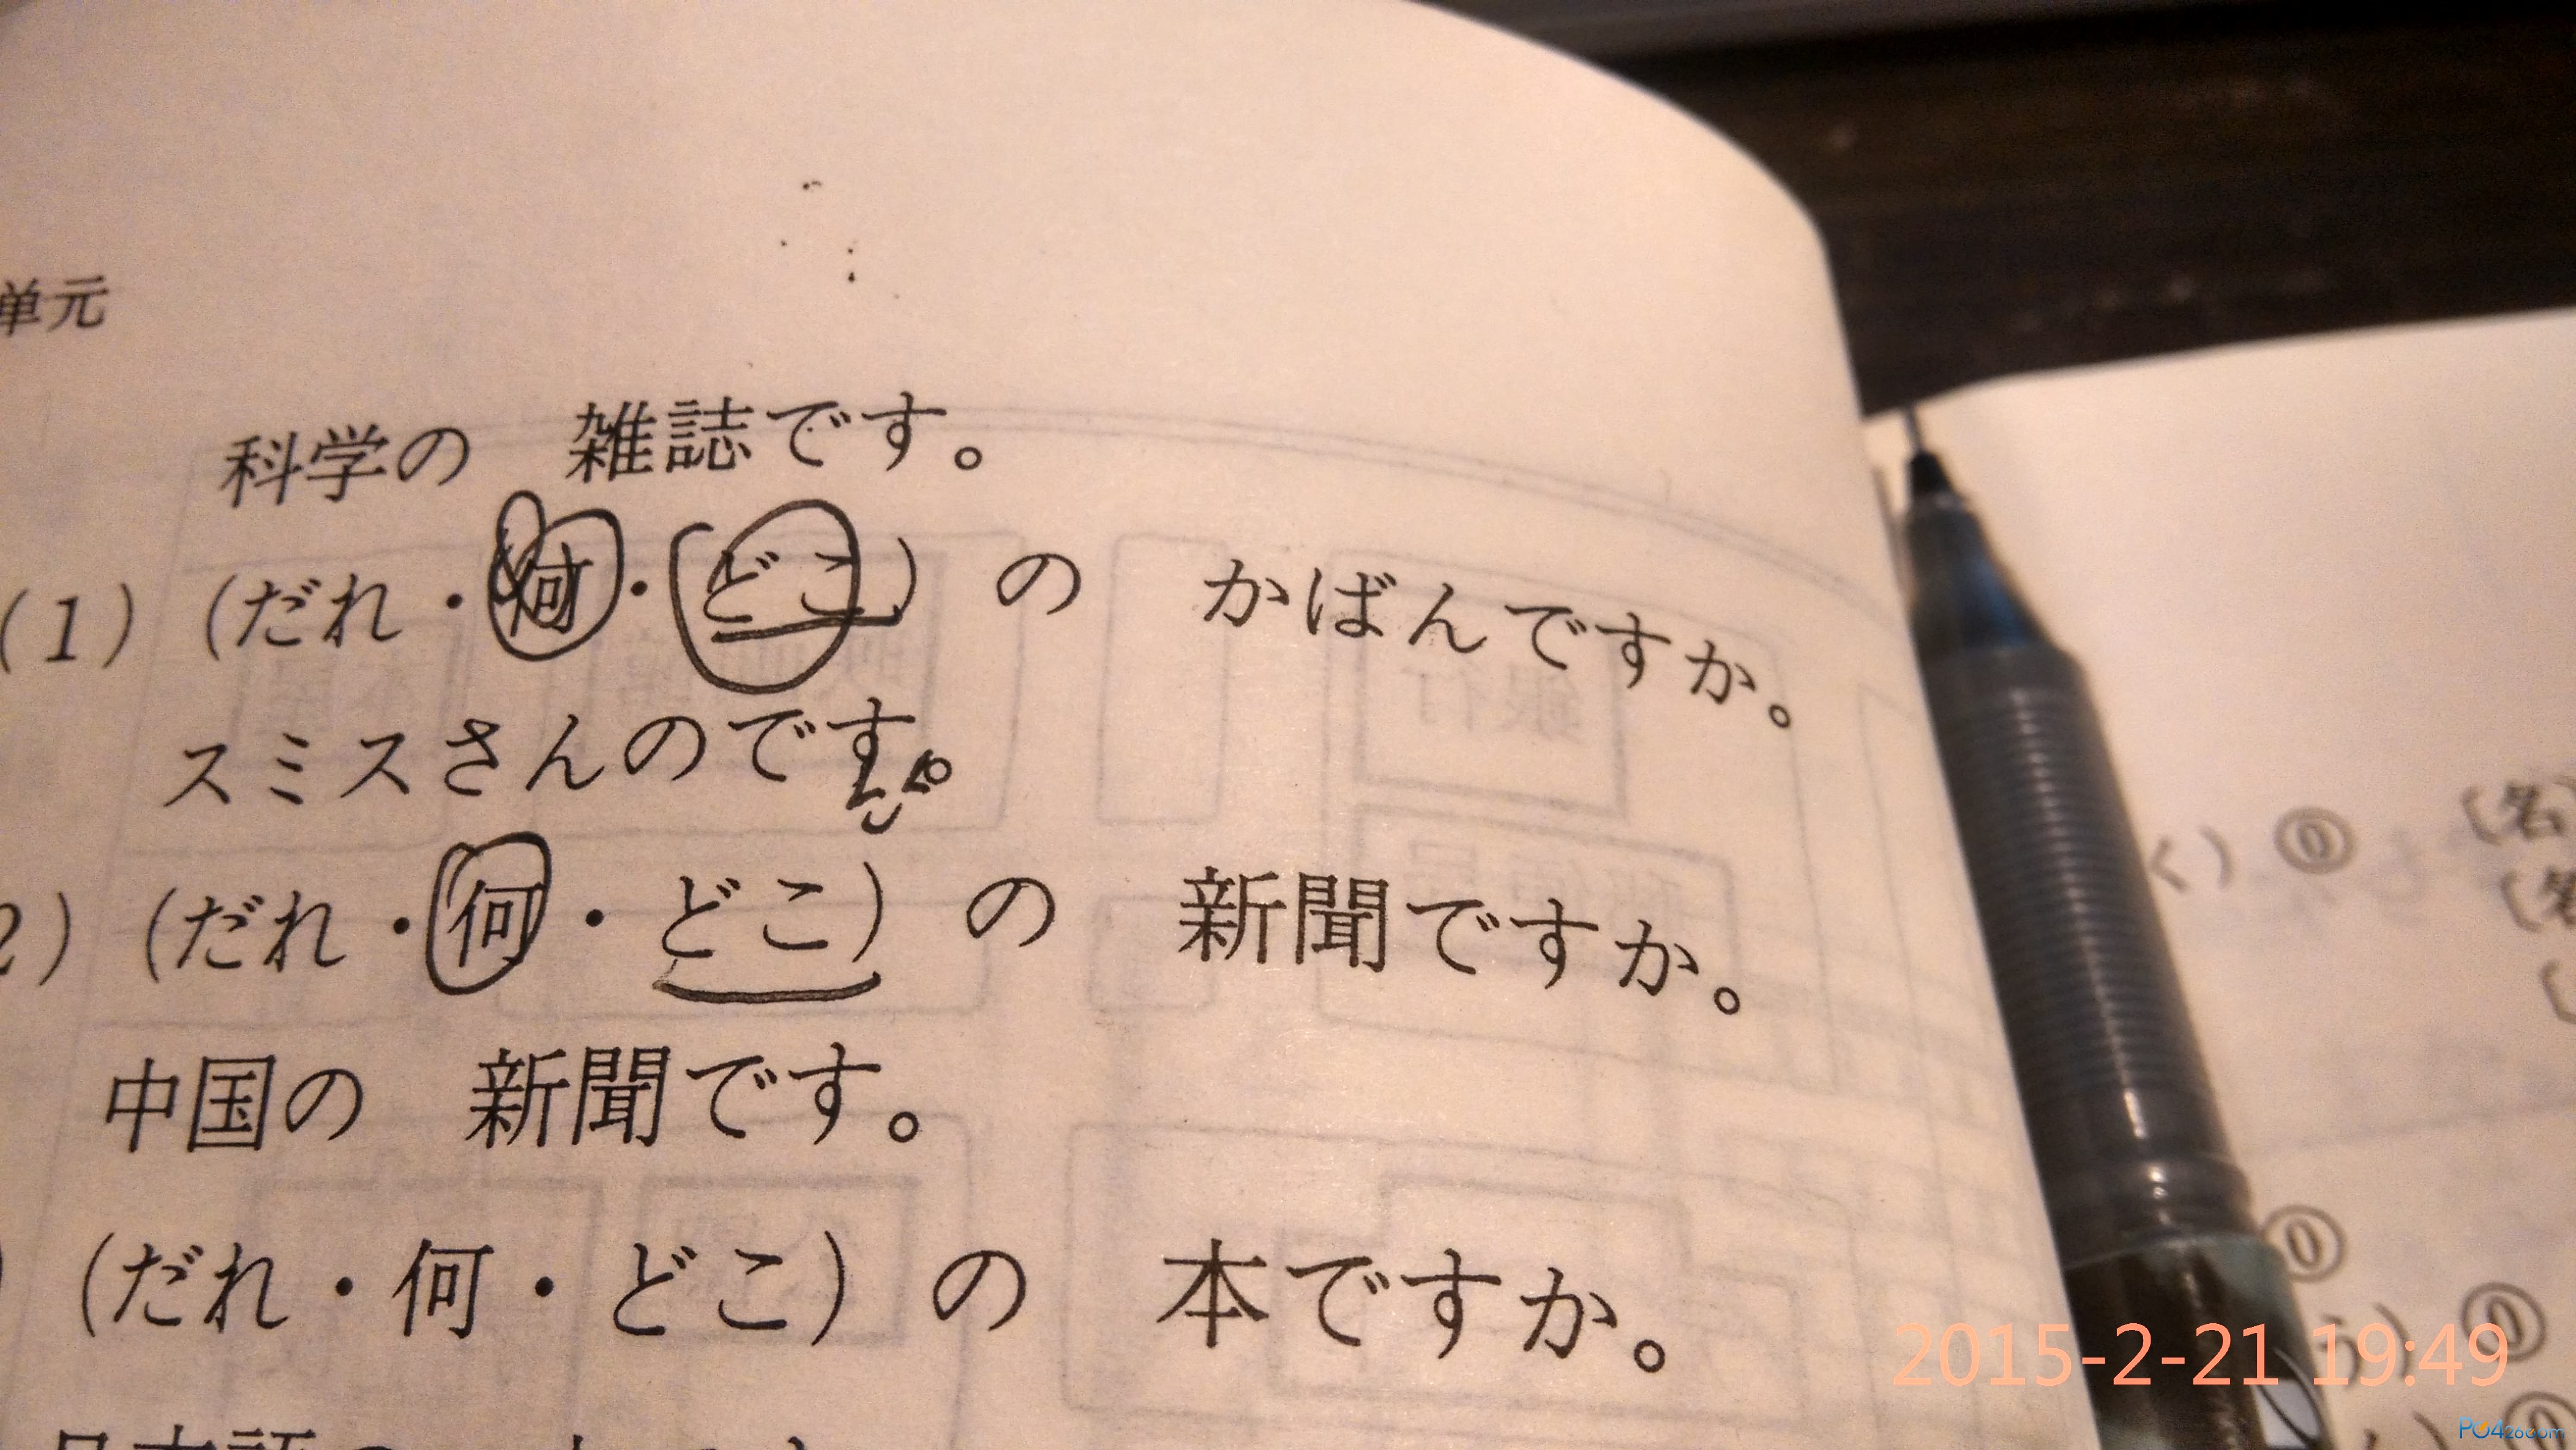 単元
科学の　雑誌です。
(1) (だれ・何・どこ) の　かばんですか。
スミスさんのです。
2) (だれ・何・どこ) の　新聞ですか。
中国の　新聞です。
) (だれ・何・どこ) の　本ですか。
く) ⓪
(名
⓪
⓪
2015-2-21 19:49
PO426.com